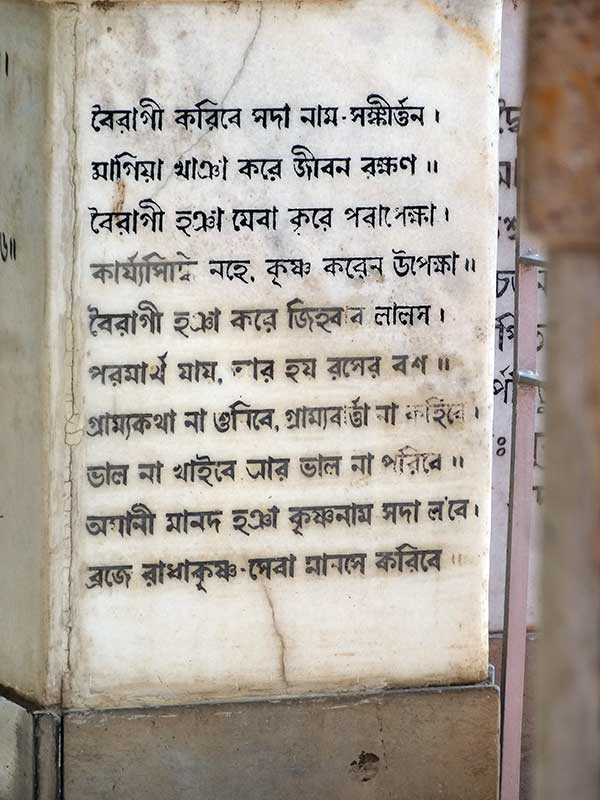 বৈরাগী করিবে সদা নাম-সঙ্কীর্ত্তন।
মাগিয়া খাঞা করে জীবন রক্ষণ॥
বৈরাগী হঞা যেবা করে পরাপেক্ষা।
কার্য্যসিদ্ধি নহে, কৃষ্ণ করেন উপেক্ষা॥
বৈরাগী হঞা করে জিহ্বার লালস।
পরমার্থ যায়, আর হয় রসের বশ॥
গ্রাম্যকথা না শুনিবে, গ্রাম্যবার্ত্তা না কহিবে।
ভাল না খাইবে আর ভাল না পরিবে॥
অমানী মানদ হঞা কৃষ্ণনাম সদা ল'বে।
ব্রজে রাধাকৃষ্ণ-সেবা মানসে করিবে॥